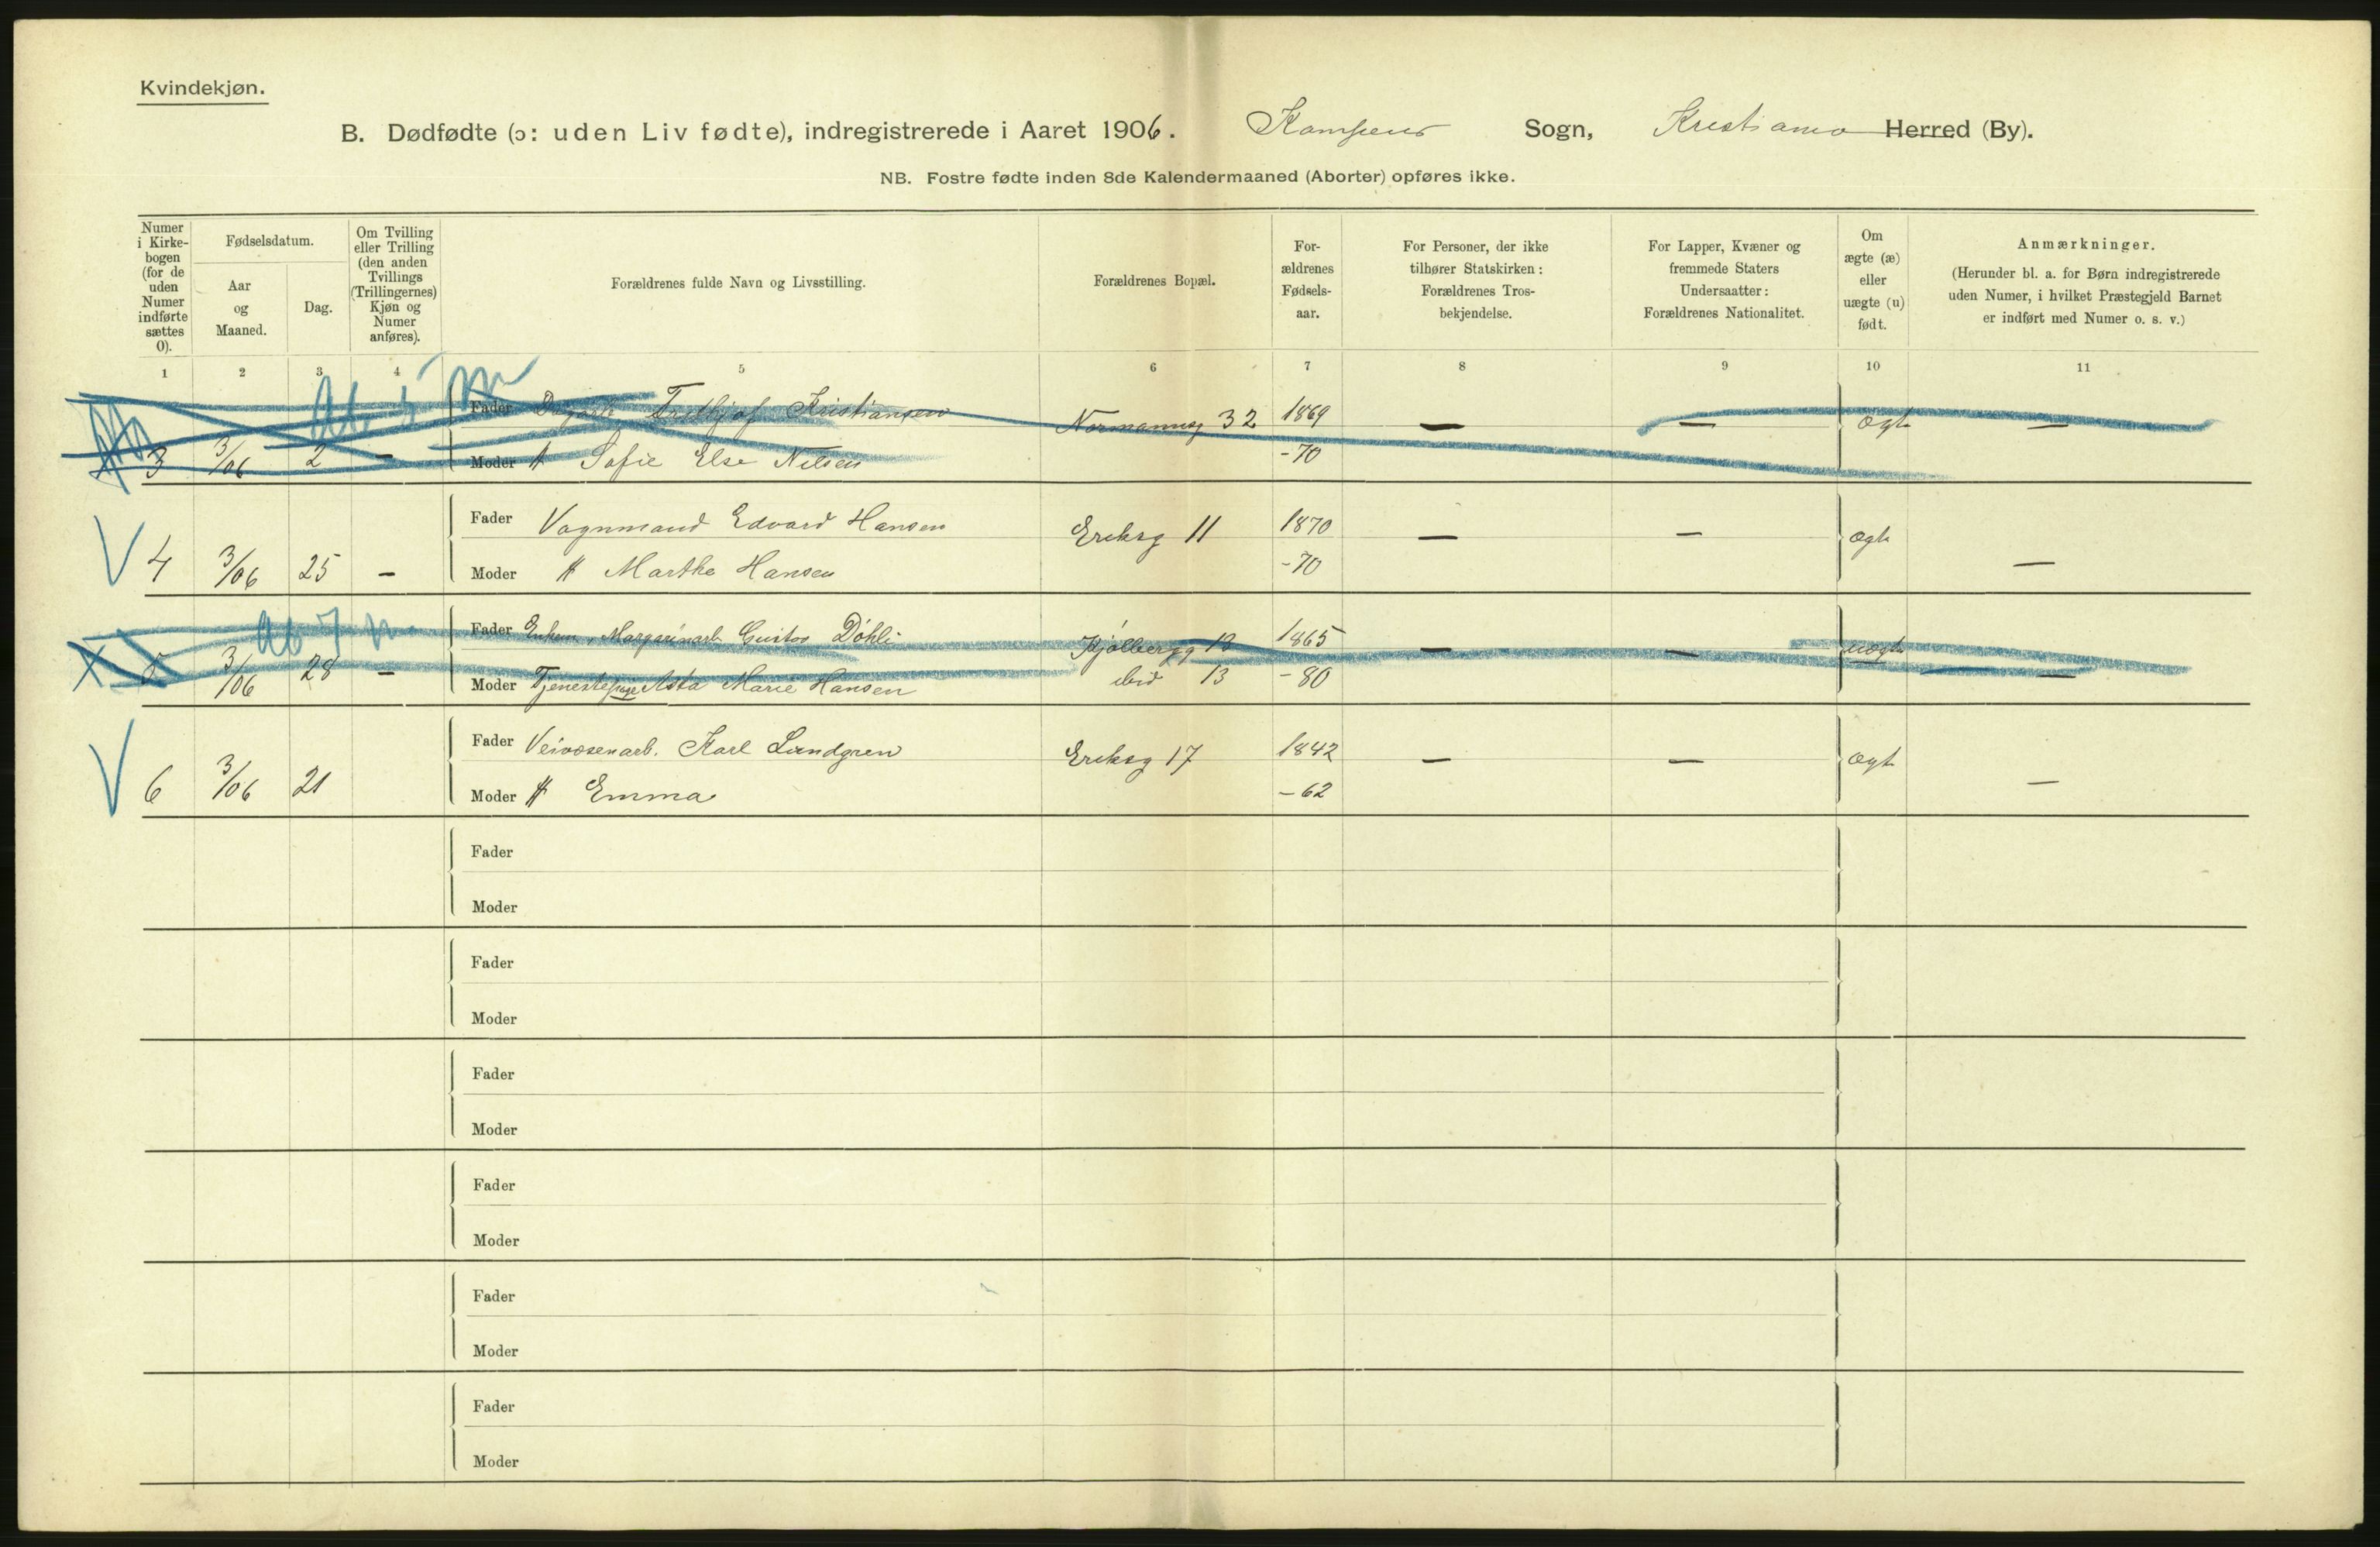 Kvindekjøn.
B. Dødfødte (ɔ: uden Liv fødte), indregistrerede i Aaret 1906. Kampens Sogn, Kristiania Herred (By).
NB. Fostre fødte inden 8de Kalendermaaned (Aborter) opføres ikke.
Numer i Kirkebogen (for de uden Numer indførte sættes 0).
Fødselsdatum.
Aar og Maaned.
Dag.
Om Tvilling eller Trilling (den anden Tvillings (Trillingernes) Kjøn og Numer anføres).
Forældrenes fulde Navn og Livsstilling.
Forældrenes Bopæl.
Forældrenes Fødselsaar.
For Personer, der ikke tilhører Statskirken: Forældrenes Trosbekjendelse.
For Lapper, Kvæner og fremmede Staters Undersaatter: Forældrenes Nationalitet.
Om ægte (æ) eller uægte (u) født.
Anmærkninger.
(Herunder bl. a. for Børn indregistrerede uden Numer, i hvilket Præstegjeld Barnet er indført med Numer o. s. v.)
1 2 3 4 5 6 7 8 9 10 11
Ab 5 m
Fader Fridthjof Kristiansen Normannsg 32 1869 — — ægt —
3 3/06 2 – Moder H Sofie Else Nilsen - 70
Fader Vognmand Edvard Hansen Eriksg 11 1870 — — ægte
V 4 3/06 25 – Moder H Marthe Hansen - 70 —
Ab 7 m
Fader Enkem. Margarinarb. Gustav Döhli Kjølbergg 13 1865 — — uægte
X 5 3/06 28 – Moder Tjenestepige Asta Marie Hansen ibid 13 - 80 —
Fader Veivæsenarb. Karl Lundgren Eriksg 17 1842 — — ægt
V 6 3/06 21 Moder H Emma - 62 —
Fader
Moder
Fader
Moder
Fader
Moder
Fader
Moder
Fader
Moder
Fader
Moder